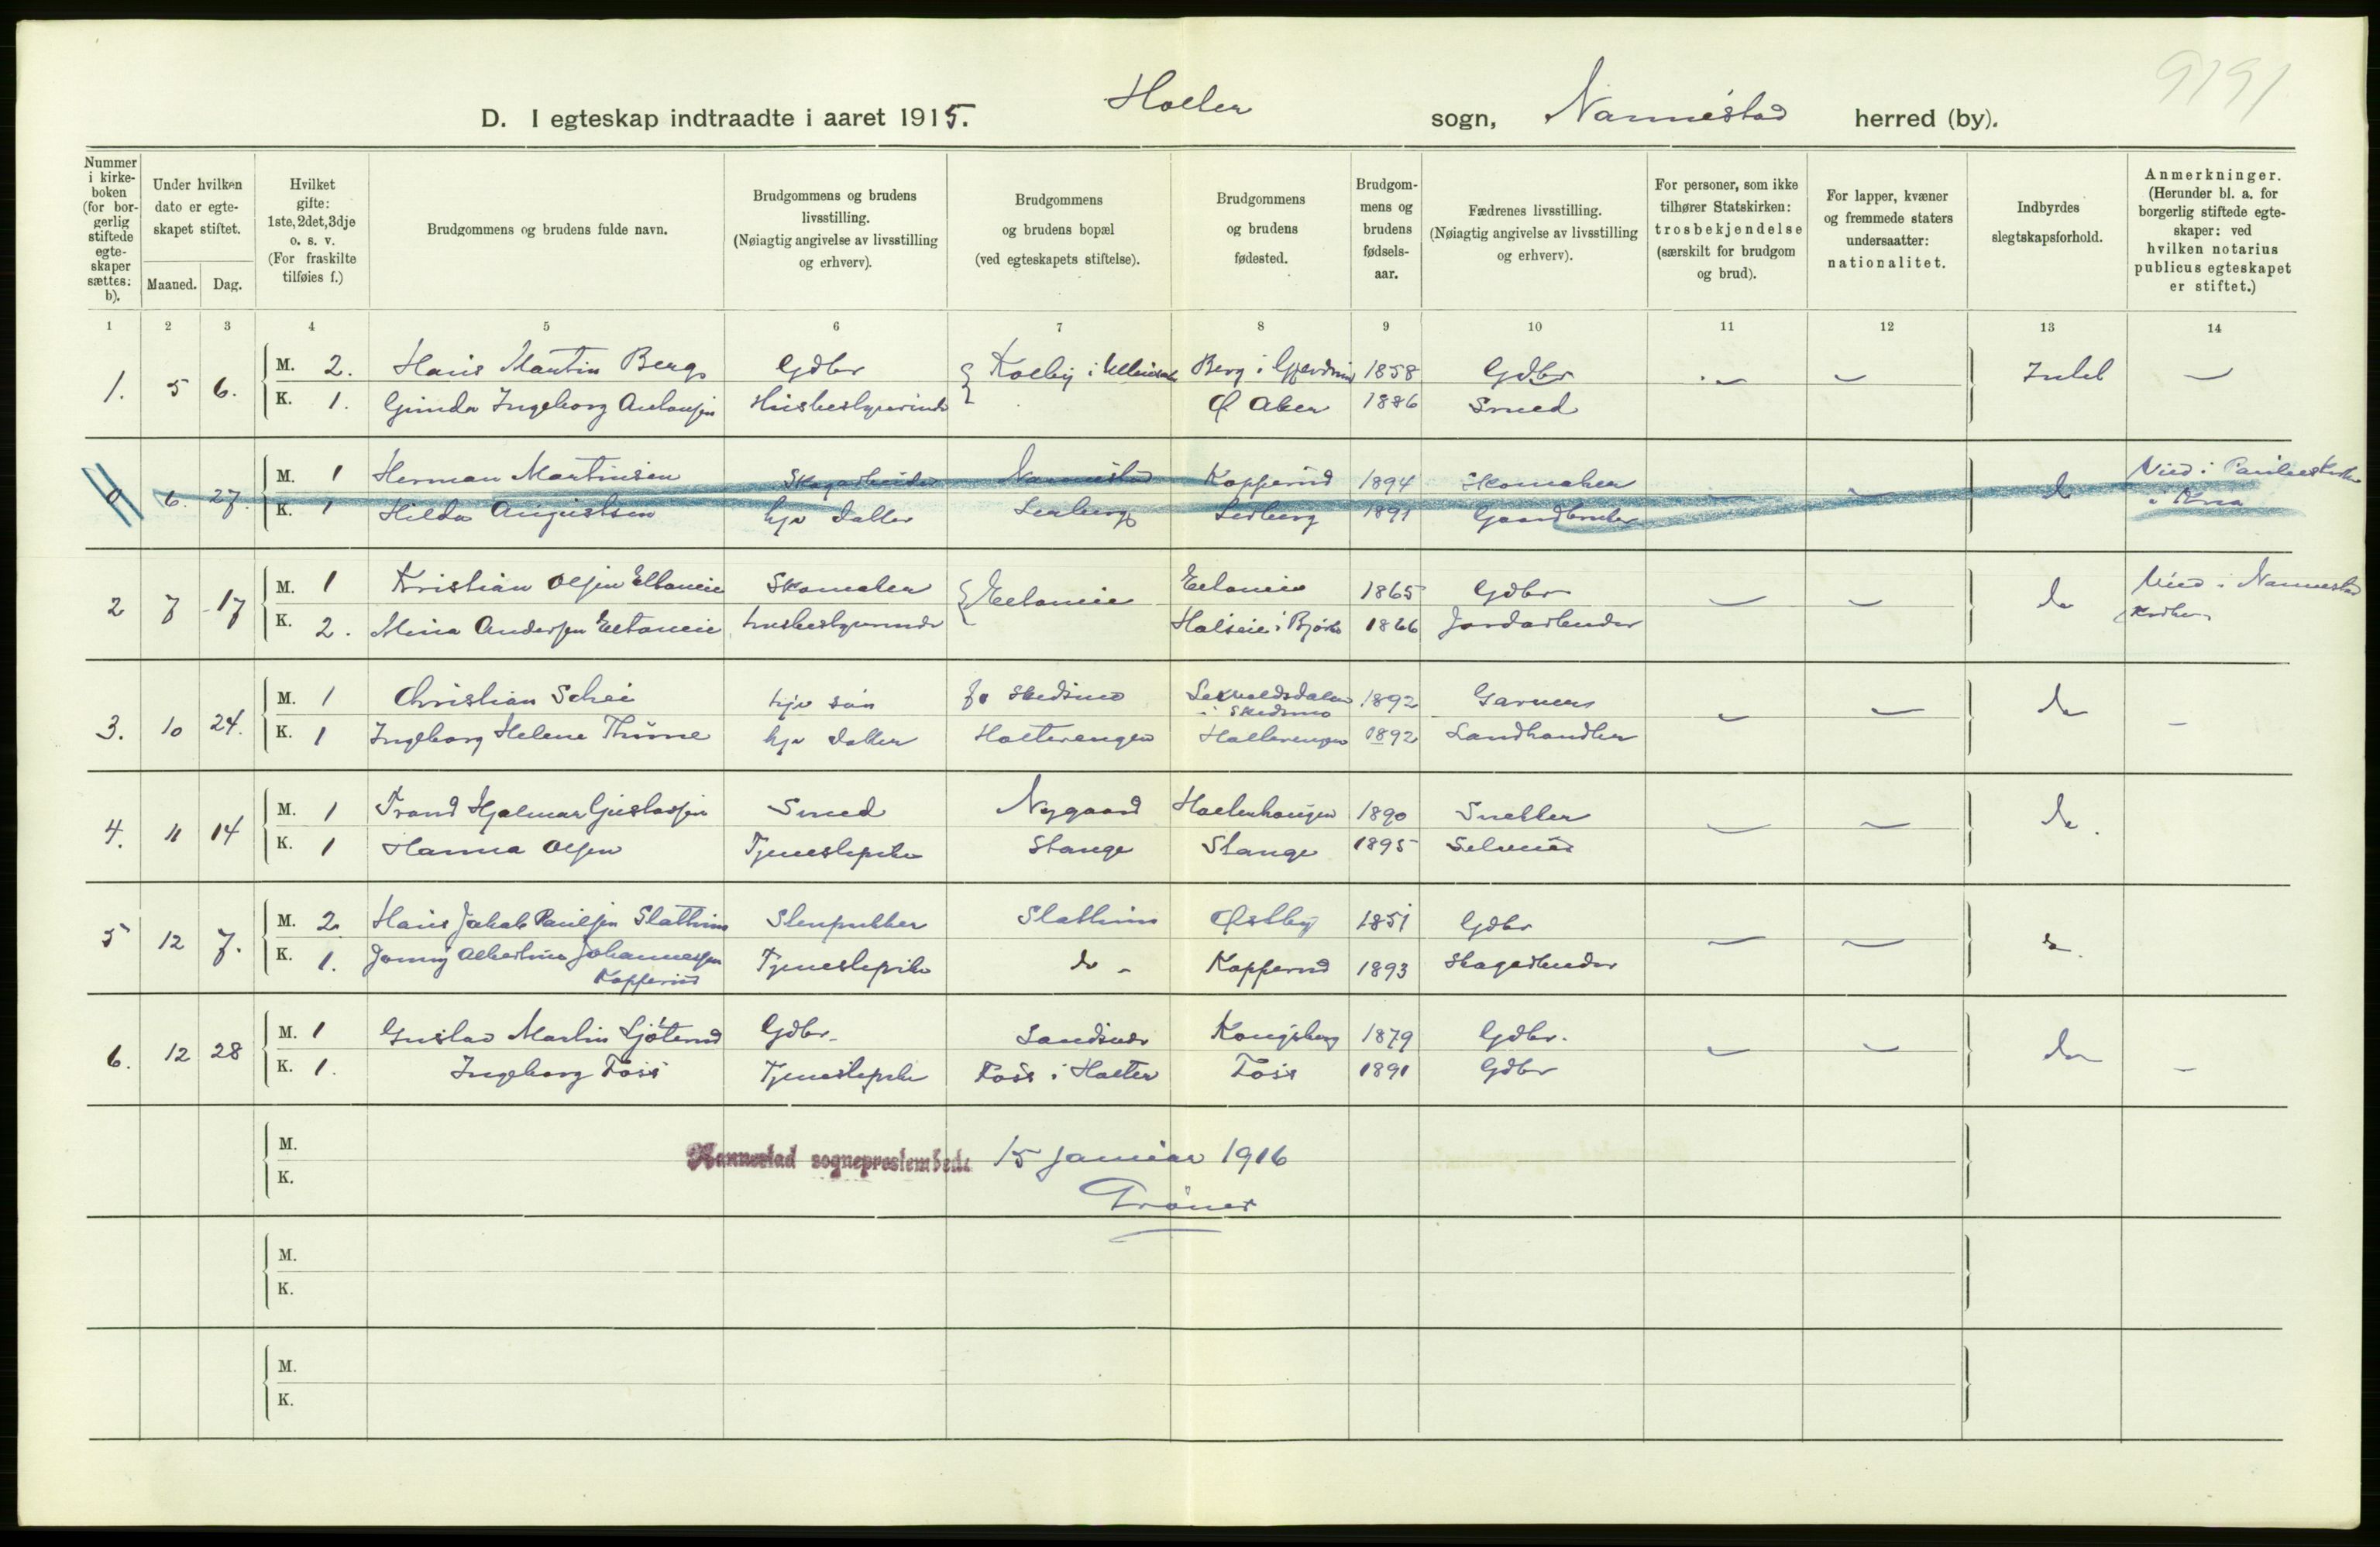 9191
D. I egteskap indtraadte i aaret 1915. Holter sogn, Nannestad herred (by).
Nummer i kirkeboken (for borgerlig stiftede egteskaper sættes: b).
Under hvilken dato er egteskapet stiftet.
Maaned. Dag.
Hvilket gifte: 1ste, 2det, 3dje o. s. v. (For fraskilte tilføies f.)
Brudgommens og brudens fulde navn.
Brudgommens og brudens livsstilling. (Nøiagtig angivelse av livsstilling og erhverv).
Brudgommens og brudens bopæl (ved egteskapets stiftelse).
Brudgommens og brudens fødested.
Brudgommens og brudens fødselsaar.
Fædrenes livsstilling. (Nøiagtig angivelse av livsstilling og erhverv).
For personer, som ikke tilhører Statskirken: trosbekjendelse (særskilt for brudgom og brud).
For lapper, kvæner og fremmede staters undersaatter: nationalitet.
Indbyrdes slegtskapsforhold.
Anmerkninger. (Herunder bl. a. for borgerlig stiftede egteskaper: ved hvilken notarius publicus egteskapet er stiftet.)
1 2 3 4 5 6 7 8 9 10 11 12 13 14
1. 5 6. M. 2. Hans Martin Berg Gdbr Kolby i Ullensaker Berg i Gjerdrum 1858 Gdbr Intet
K. 1. Gunda Ingeborg Antonsen Husbestyrerinde Ø Aker 1886 Smed
0 6. 27. M. 1 Herman Martinsen Skogarbeider Nannestad Kopperud 1894 Skomaker do Viet i Pauluskirke
K. 1 Hilda Augustsen hjv datter 1891 Gaardbruker i Kria
2 7 17 M. 1 Kristian Olsen Eltoneie Skomaker Eltoneie Eltoneie 1865 Gdbr do Viet i Nannestad
K. 2. Mina Andersen Eltoneie husbestyrerinde Holseie i Bjørke 1866 Jordarbeider Kirke
3. 10 24. M. 1 Christian Schei hjv søn Skedsmo i Skedsmo 1892 Garver do
K. 1 Ingeborg Helene Thune hjv datter Holterengen Holterengen 1892 Landhandler
4. 11 14 M. 1 Trond Hjalmar Gustavsen Smed Nygaard Holterhaugen 1890 Snekker do.
K. 1 Hanna Olsen Tjenestepike Stange Stange 1895 Selveier
5 12 7. M. 2. Hans Jakob Paulsen Slattum Stenpukker Slattum Østby 1851 Gdbr do.
K. 1. Jenny Albertine Johannessen Kopperud Tjenestepike do - Kopperud 1893 Skogarbeider
6. 12 28 M. 1 Gustav Martin Sjøterud Gdbr. Sandsnes Kongsberg 1879 Gdbr. do
K. 1. Ingeborg Foss Tjenestepike Foss i Holter Foss 1891 Gdbr
M. Nannestad sogneprestembede 15 januar 1916
K. Grøner
M.
K.
M.
K.